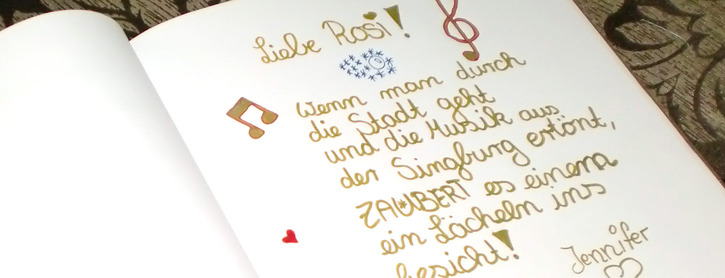 Liebe Rosi!
Wenn man durch
die Stadt geht
und die Musik aus
der Singburg ertönt,
ZAUBERT es einem
ein Lächeln ins
Gesicht!
Jennifer